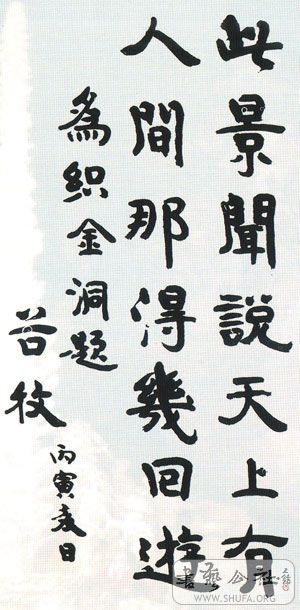 此景聞説天上有
人間那得幾回遊
為織金洞題
谷牧
丙寅夏日
書藝公社
WWW.SHUFA.ORG